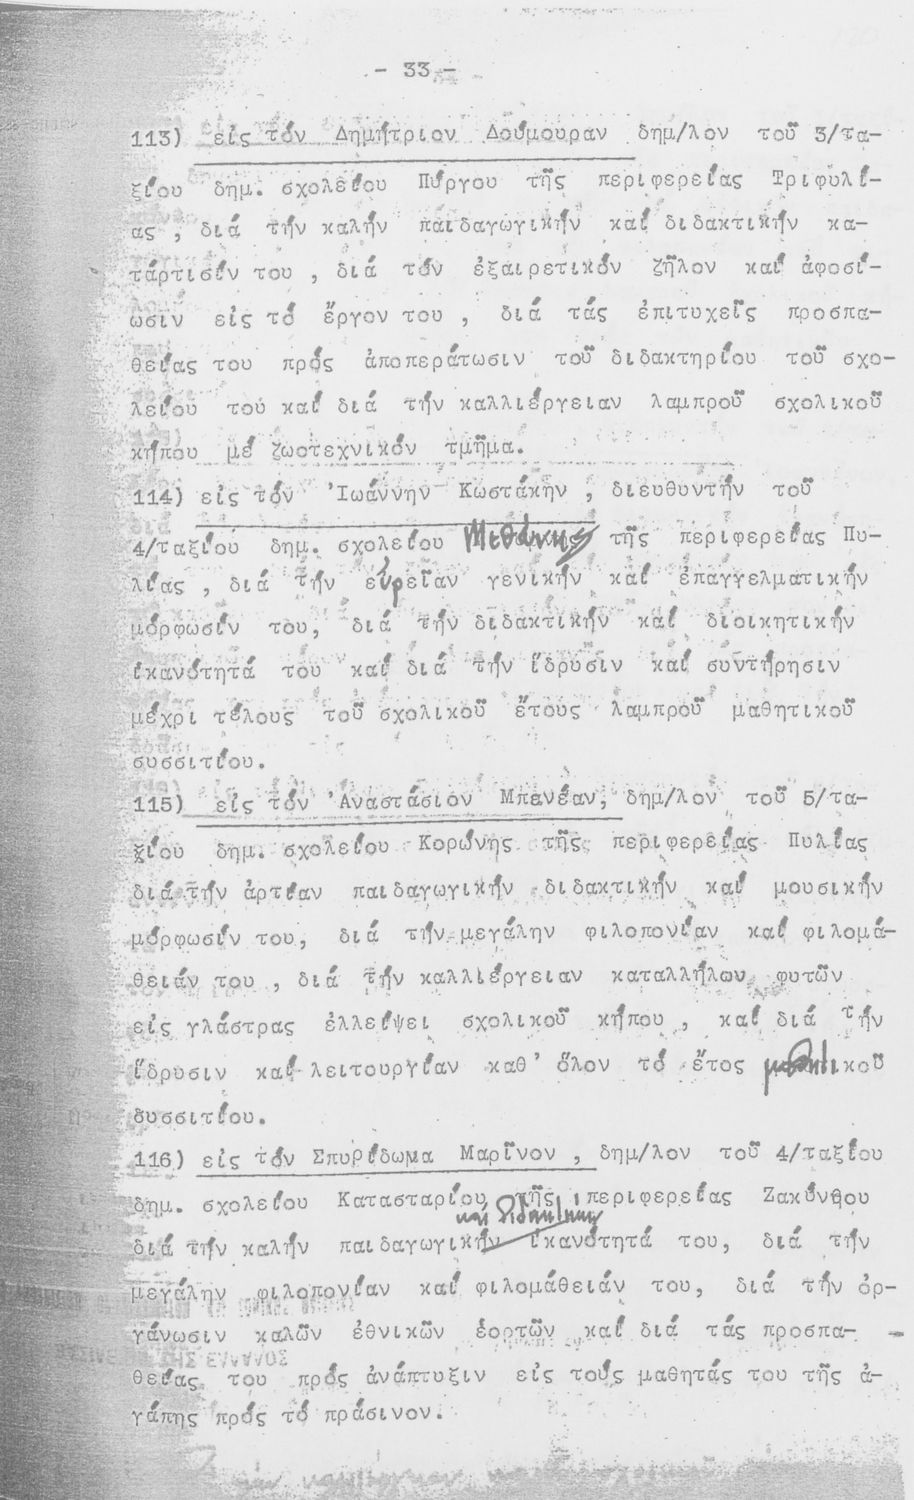 - 33 -
113) εἰς τόν Δημήτριον Δούμουραν δημ/λον τοῦ 3/τα-
ξίου δημ. σχολείου Πύργου τῆς περιφερείας Τριφυλί-
ας , διά τήν καλήν παιδαγωγικήν καί διδακτικήν κα-
τάρτισίν του , διά τόν ἐξαιρετικόν ζῆλον καί ἀφοσί-
ωσιν εἰς τό ἔργον του , διά τάς ἐπιτυχεῖς προσπα-
θείας του πρός ἀποπεράτωσιν τοῦ διδακτηρίου τοῦ σχο-
λείου τού καί διά τήν καλλιέργειαν λαμπροῦ σχολικοῦ
κήπου μέ ζωοτεχνικόν τμῆμα.
114) εἰς τόν 'Ιωάννην Κωστάκην , διευθυντήν τοῦ
4/ταξίου δημ. σχολείου Μεθώνης τῆς περιφερείας Πυ-
λίας , διά τήν εὐρεῖαν γενικήν καί ἐπαγγελματικήν
μόρφωσίν του, διά τήν διδακτικήν καί διοικητικήν
ἱκανότητά του καί διά τήν ἵδρυσιν καί συντήρησιν
μέχρι τέλους τοῦ σχολικοῦ ἔτους λαμπροῦ μαθητικοῦ
συσσιτίου.
115) εἰς τόν 'Αναστάσιον Μπενέαν, δημ/λον τοῦ 5/τα-
ξίου δημ. σχολείου Κορώνης τῆς περιφερείας Πυλίας
διά τήν ἀρτίαν παιδαγωγικήν διδακτικήν καί μουσικήν
μόρφωσίν του, διά τήν μεγάλην φιλοπονίαν καί φιλομά-
θειάν του , διά τήν καλλιέργειαν καταλλήλων φυτῶν
εἰς γλάστρας ἐλλείψει σχολικοῦ κήπου , καί διά τήν
ἵδρυσιν καί λειτουργίαν καθ' ὅλον τό ἔτος μαθητικοῦ
συσσιτίου.
116) εἰς τόν Σπυρίδωμα Μαρῖνον , δημ/λον τοῦ 4/ταξίου
δημ. σχολείου Κατασταρίου τῆς περιφερείας Ζακύνθου
καί διδακτικήν
διά τήν καλήν παιδαγωγικήν ἱκανότητά του, διά τήν
μεγάλην φιλοπονίαν καί φιλομάθειάν του, διά τήν ὀρ-
γάνωσιν καλῶν ἐθνικῶν ἑορτῶν καί διά τάς προσπα-
θείας του πρός ἀνάπτυξιν εἰς τούς μαθητάς του τῆς ἀ-
γάπης πρός τό πράσινον.